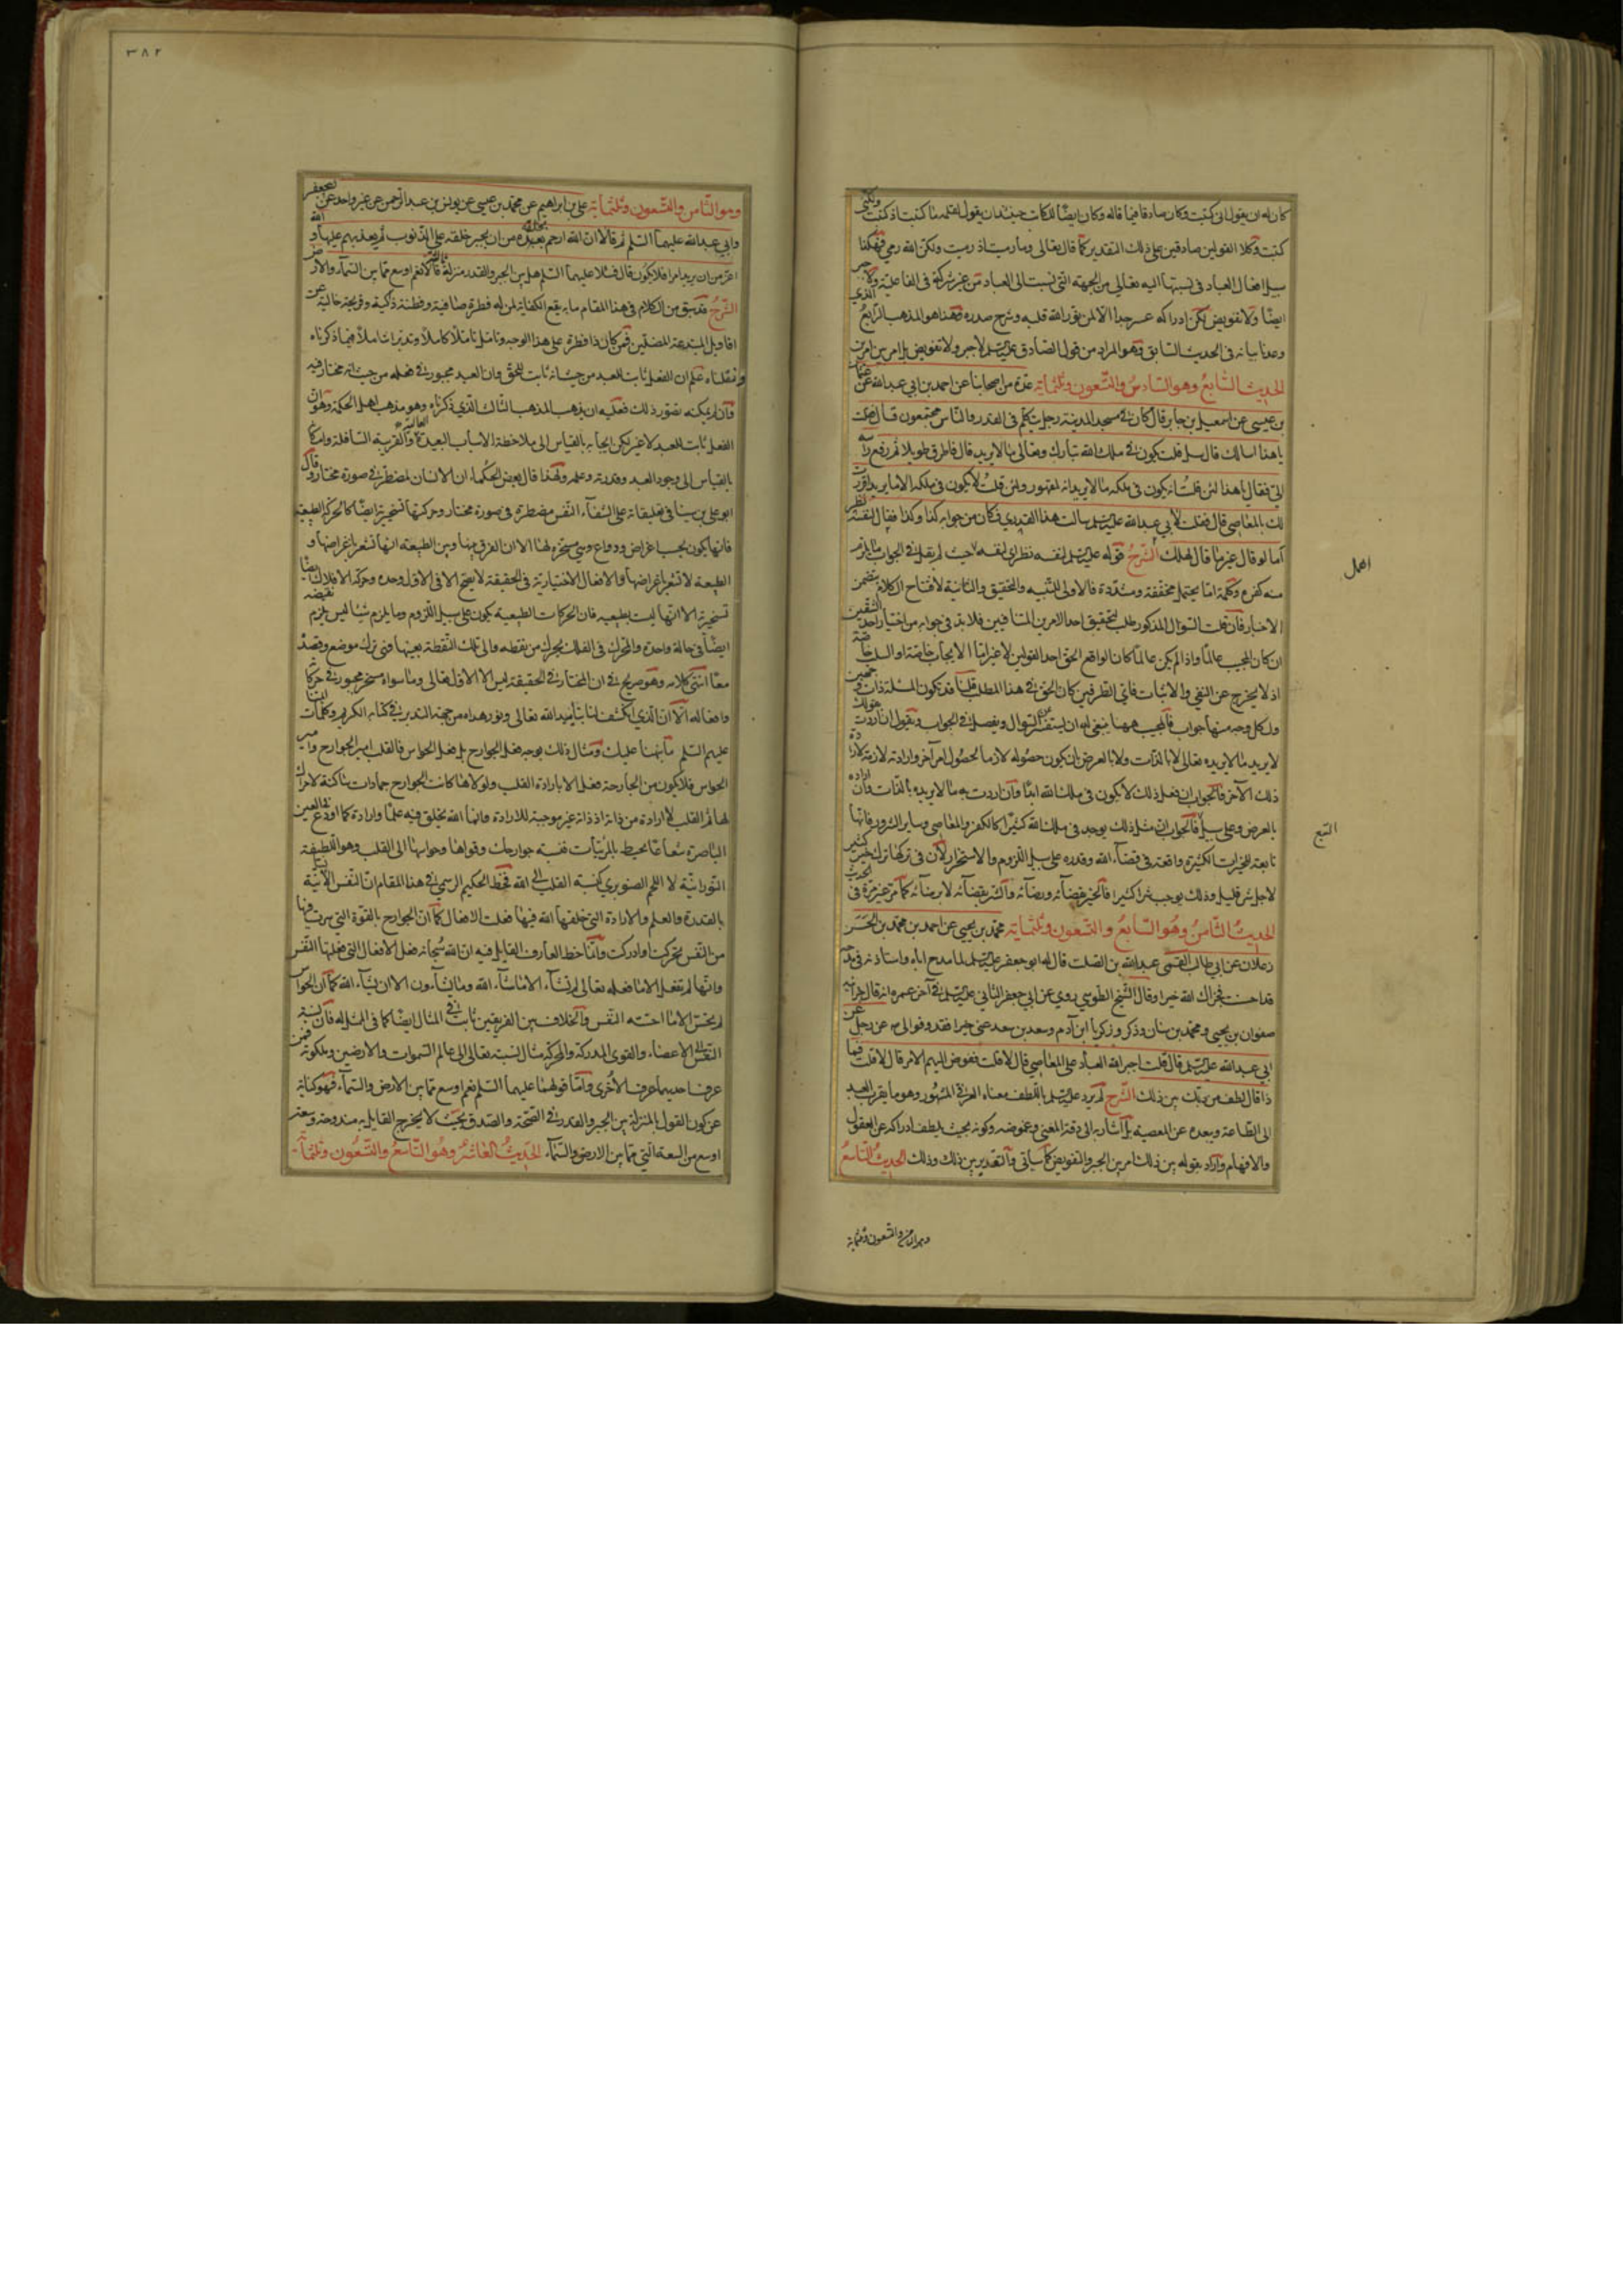 كان له ان يقول انى كتبت وكان صادقا فيما قاله وكان ايضا للكاتب حينئذ ان يقول لقلمه ما كتبت اذ كتبت ولكنى
كتبت وكلا القولين صادقين على ذلك التقدير كما قال تعالى وما رميت اذ رميت ولكن الله رمى فهكذا
سبيل افعال العباد فى نسبتها اليه تعالى من الجهة التى نسبت الى العباد من غير شركة فى الفاعلية ولا جبر
ايضا ولا تفويض لكن ادراكه عسر جدا الا لمن نور الله قلبه وشرح صدره فهذا هو المذهب الرابع الذى
وعدنا بيانه فى الحديث السابق وهو المراد من قول الصادق عليه السلم لا جبر ولا تفويض بل امر بين امرين
الحديث السابع وهو السادس والتسعون وثلثماية عدة من اصحابنا عن احمد بن ابى عبد الله عن عثمان
بن عيسى عن اسمعيل بن جابر قال كان فى مسجد المدينة رجل يتكلم فى القدر والناس مجتمعون قال فقلت
يا هذا اسالك قال سل قلت يكون فى ملك الله تبارك وتعالى ما لا يريد قال فاطرق طويلا ثم رفع راسه
الى فقال يا هذا لئن قلت انه يكون فى ملكه ما لا يريد انه لمقهور ولئن قلت لا يكون فى ملكه الا ما يريد اقررت
لك بالمعاصى قال فقلت لابى عبد الله عليه السلم سالت هذا القدرى فكان من جوابه كذا وكذا فقال لنفسه نظر
اما لو قال غير ما قال لهلك الشرح قوله عليه السلم لنفسه نظر اى لنفسه حيث لم يقل فى الجواب ما يلزم
منه كفره وكلمة اما يحتمل مخففة ومشددة فالاولى للتنبيه والتحقيق والثانية لافتاح الكلام بتضمن
الاخبار فان قلت السوال المذكور طلب لتحقيق احد الامرين المتنافيين فلا بد فى جوابه من اختيار احد الشقين
ان كان المجيب عالما واذا لم يكن عالما كان الواقع الحق احد القولين لا غير اما الايجاب خاصة او السلب خاصة
اذ لا يخرج عن النفى والاثبات فاى الطرفين كان الحق فى هذا المطلب قلنا قد تكون المسئلة ذات وجهين
ولكل وجه منها جواب فالمجيب ههنا ينبغى له ان يستفسر السوال ويفصل فى الجواب ويقول ان اردت بقولك
لا يريد ما لا يريده تعالى لا بالذات ولا بالعرض بان يكون حصوله لازما لحصول امر آخر وارادته لازمة لارادة
ذلك الآخر فالجواب ان فعل ذلك لا يكون فى ملك الله ابدا وان اردت به ما لا يريده بالذات وان اراده
بالعرض وعلى سبيل فالجواب ان مثل ذلك يوجد فى ملك الله كثيرا كالكفر والمعاصى وساير الشرور فانها
تابعة للخيرات الكثيرة واقعة فى قضاء الله وقدره على سبيل اللزوم والاستجرار لان فى تركها ترك خير كثير
لاجل شر قليل وذلك يوجب شرا كثيرا فالخير بقضائه ورضائه والشر بقضائه لا برضائه كما مر غير مرة فى الحديث
الحديث الثامن وهو السابع والتسعون وثلثماية محمد بن يحيى عن احمد بن محمد بن الحسن
زعلان عن ابى طالب القمى عبد الله بن الصلت قال له ابو جعفر عليه السلم لما مدح اباه واستاذنه فى مدحه
قد احسنت فجزاك الله خيرا وقال الشيخ الطوسى روى عن ابى جعفر الثانى عليه السلم فى آخر عمره انه قال جزى الله
صفوان بن يحيى ومحمد بن سنان وذكر وزكريا ابن آدم وسعد بن سعد عنى خيرا فقد وفوا لى عن رجل عن
ابى عبد الله عليه السلم قال قلت اجبر الله العباد على المعاصى قال لا قلت ففوض اليهم الامر قال لا قلت فما
ذا قال لطف من ربك بين ذلك الشرح لم يرد عليه السلم باللطف معناه العرفى المشهور وهو ما يقرب العبد
الى الطاعة ويبعده عن المعصية بل اشار به الى دقة المعنى وغموضه وكونه بحيث يلطف ادراكه عن العقول
والافهام واراد بقوله بين ذلك امر بين الجبر والتفويض كما سياتى والتقدير بين ذلك وذلك الحديث التاسع
وهو الثامن والتسعون وثلثماية
التبع
٣٨٢
وهو الثامن والتسعون وثلثماية على بن ابراهيم عن محمد بن عيسى عن يونس بن عبد الرحمن عن غير واحد عن ابى جعفر
وابى عبد الله عليهما السلم قالا ان الله ارحم بخلقه من ان يجبر خلقه على الذنوب ثم يعذبهم عليها والله
اعز من ان يريد امرا فلا يكون قال فسئلا عليهما السلم هل بين الجبر والقدر منزلة ثالثة قالا نعم اوسع مما بين السماء والارض
الشرح قد سبق من الكلام فى هذا المقام ما به يقع الكفاية لمن له فطرة صافية وفطنة ذكية وقريحة خالية عن
اقاويل المبتدعة المضلين فمن كان ذا فطرة على هذا الوجه وتامل تاملا كاملا وتدبر تدبرا شاملا فيما ذكرناه
ونقلناه علم ان الفعل ثابت للعبد من حيث انه ثابت للحق وان العبد مجبور فى فعله من حيث انه مختار فيه
فان لم يمكنه تصور ذلك فعليه ان يذهب المذهب الثالث الذى ذكرناه وهو مذهب اهل الحكمة وهو ان
الفعل ثابت للعبد لا غير لكن ايجابه بالقياس الى ملاحظة الاسباب البعيدة العالية والقريبة السافلة وامكانه
بالقياس الى وجود العبد وقدرته وعلمه ولهذا قال بعض الحكماء ان الانسان لمضطر فى صورة مختار وقال
ابو على بن سينا فى تعليقاته على الشفاء النفس مضطرة فى صورة مختار وحركتها تسخيرية ايضا كالحركة الطبيعية
فانها يكون بحسب اغراض ودواع وهى مسخرة لها الا ان الفرق بينها وبين الطبيعة انها تشعر باغراضها و
الطبيعة لا تشعر باغراضها والافعال الاختيارية فى الحقيقة لا يصح الا فى الاول وحده وحركة الافلاك ايضا
تسخيرية الا انها ليست بطبيعية فان الحركات الطبيعية يكون على سبيل اللزوم وما يلزم شيئا ليس يلزم نقيضه
ايضا فى حالة واحدة والمحرك فى الفلك يحرك من نقطة والى تلك النقطة بعينها فهى ترك موضع وقصده
معا انتهى كلامه وهو صريح فى ان المختار فى الحقيقة ليس الا الاول تعالى وما سواه مسخر مجبور فى حركاته
وافعاله الا ان الذى انكشف لنا بتاييد الله تعالى ونور هداه من جهة التدبر فى كتابه الكريم وكلمات ائمتنا
عليهم السلم ما نبهنا عليك ومثال ذلك بوجه فعل الجوارح بل فعل الحواس فالقلب امير الجوارح وامير
الحواس فلا يكون من الجارحة فعل الا بارادة القلب ولولاها كانت الجوارح جمادات ساكنة لا حراك
لها ثم القلب لا ارادة من ذاته اذ ذاته غير موجبة للارادة وانما الله يخلق فيه علما وارادة كما اودع فى العين
الباصرة شعاعا يحيط بالمرئيات فنسبة جوارحك وقواها وحواسها الى القلب وهو اللطيفة
النورانية لا اللحم الصنوبرى كنسبة القلب الى الله فحظ الحكيم الرسمى فى هذا المقام ان النفس الانسانية
بالقدرة والعلم والارادة التى خلقها الله فيها فعلت الافعال كما ان الجوارح بالقوة التى سرت فيها
من النفس تحركت وادركت واما حظ العارف القايل فيه ان الله سبحانه فعل الافعال التى فعلتها النفس
وانها لم تفعل الا ما فعله تعالى لم تشاء الا ما شاء الله وما تشاءون الا ان يشاء الله كما ان الحواس
لم يحس الا ما احسته النفس والخلاف بين الفريقين ثابت فى المثال ايضا كما فى الممثل له فان نسبة
النفس الى الاعضاء والقوى المدركة والمحركة مثال لنسبته تعالى الى عالم السموات والارضين وملكوته فمن
عرف احديهما عرف الاخرى واما قولهما عليهما السلم نعم اوسع مما بين الارض والسماء فهو كناية
عن كون القول بالمنزلة بين الجبر والقدر فى الصحة والصدق بحيث لا يخرج القايل به مندوحة وسعة
اوسع من السعة التى مما بين الارض والسماء الحديث العاشر وهو التاسع والتسعون وثلثماية